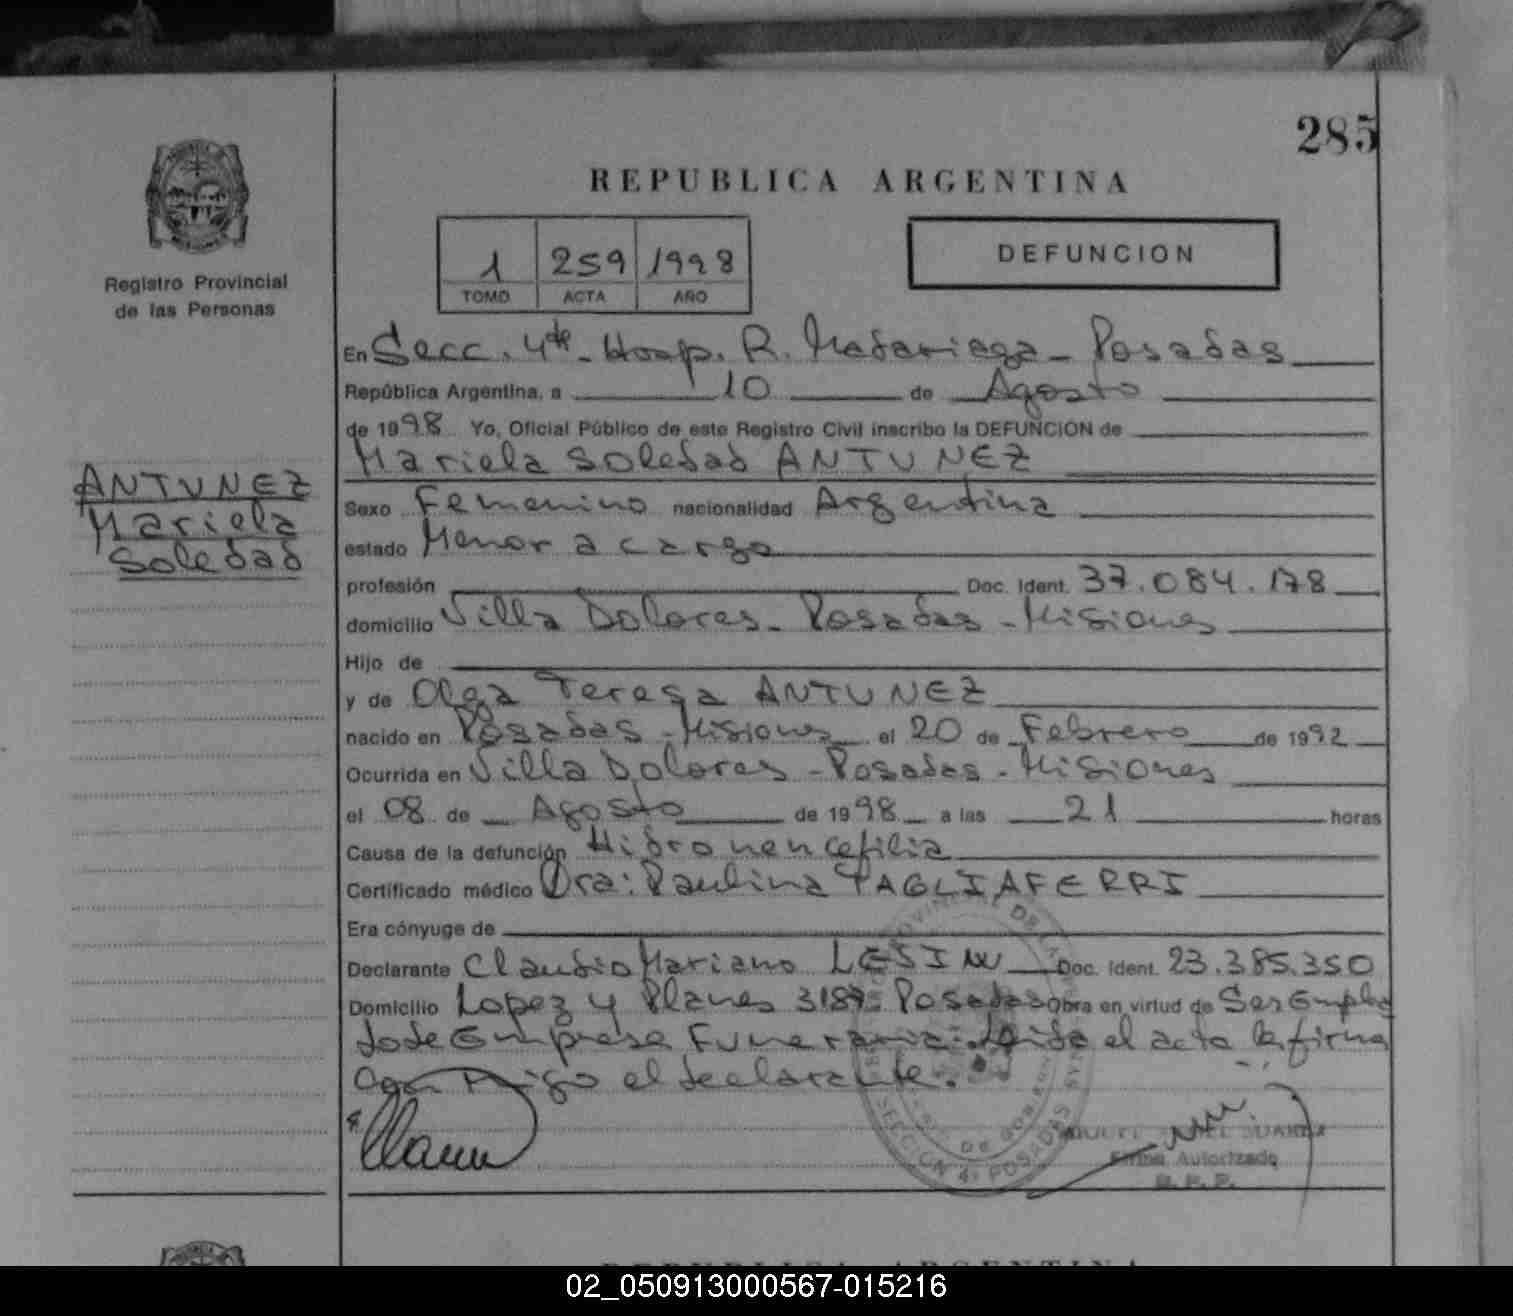 285
REPUBLICA ARGENTINA
1 259 1998
TOMO ACTA AÑO
DEFUNCION
Registro Provincial
de las Personas
ANTUNEZ
Mariela
Soledad
En Secc. 4ta - Hosp. R. Madariaga - Posadas
República Argentina, a 10 de Agosto
de 1998 Yo, Oficial Público de este Registro Civil inscribo la DEFUNCION de
Mariela Soledad ANTUNEZ
Sexo Femenino nacionalidad Argentina
estado Menor a cargo
profesión Doc. Ident. 37.084.178
domicilio Villa Dolores - Posadas - Misiones
Hijo de
y de Olga Teresa ANTUNEZ
nacido en Posadas - Misiones el 20 de Febrero de 1992
Ocurrida en Villa Dolores - Posadas - Misiones
el 08 de Agosto de 1998 a las 21 horas
Causa de la defunción Hidronencefilia
Certificado médico Dra: Paulina TAGLIAFERRI
Era cónyuge de
Declarante Claudio Mariano Doc. Ident. 23.385.350
Domicilio Lopez y Planes 3187 - Posadas Obra en virtud de Ser Emplea
do de Empresa Funeraria. Leida el acta la firma
con migo el declarante.
SECCION 4ª POSADAS
Firma Autorizado
R. P. P.
REPUBLICA ARGENTINA
02_050913000567-015216